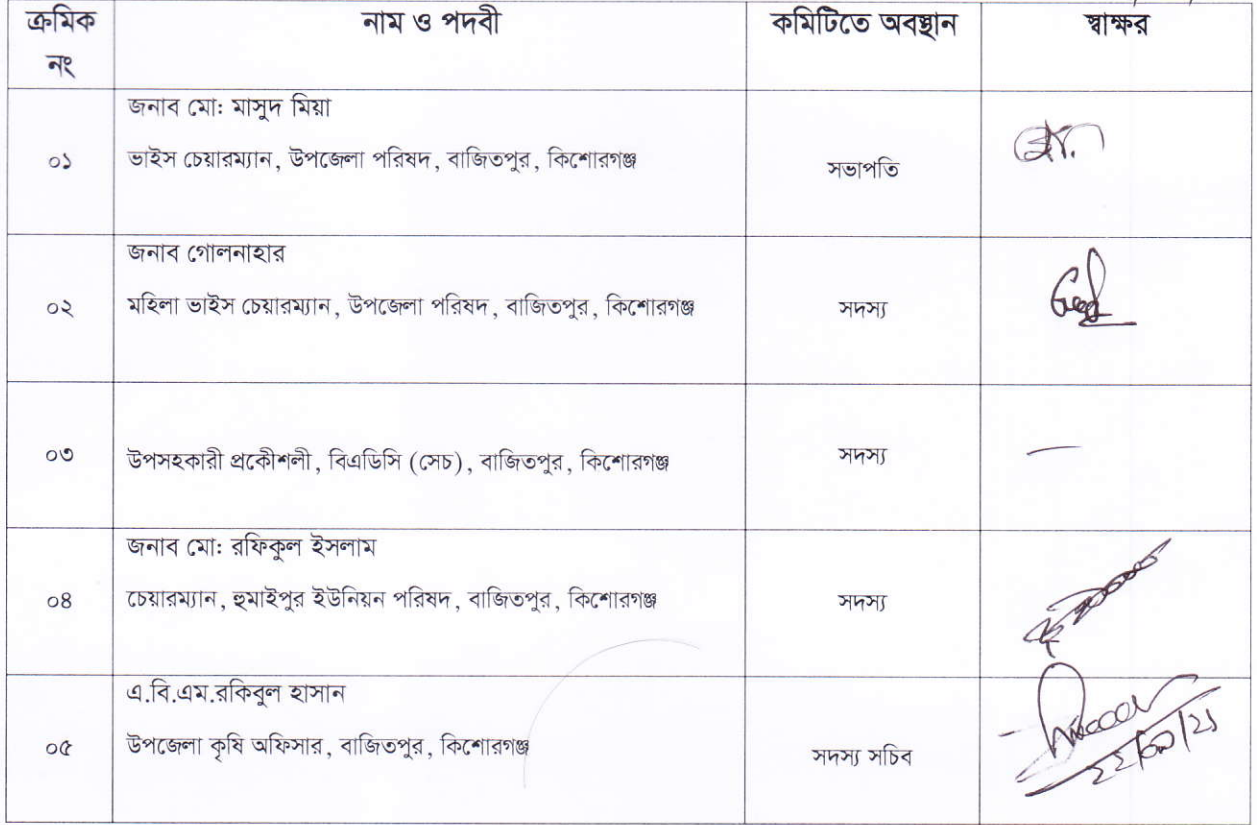 ক্রমিক নং নাম ও পদবী কমিটিতে অবস্থান স্বাক্ষর
জনাব মো: মাসুদ মিয়া
০১ ভাইস চেয়ারম্যান, উপজেলা পরিষদ, বাজিতপুর, কিশোরগঞ্জ সভাপতি
জনাব গোলনাহার
০২ মহিলা ভাইস চেয়ারম্যান, উপজেলা পরিষদ, বাজিতপুর, কিশোরগঞ্জ সদস্য
০৩ উপসহকারী প্রকৌশলী, বিএডিসি (সেচ), বাজিতপুর, কিশোরগঞ্জ সদস্য
জনাব মো: রফিকুল ইসলাম
০৪ চেয়ারম্যান, হুমাইপুর ইউনিয়ন পরিষদ, বাজিতপুর, কিশোরগঞ্জ সদস্য
এ.বি.এম.রকিবুল হাসান
০৫ উপজেলা কৃষি অফিসার, বাজিতপুর, কিশোরগঞ্জ সদস্য সচিব